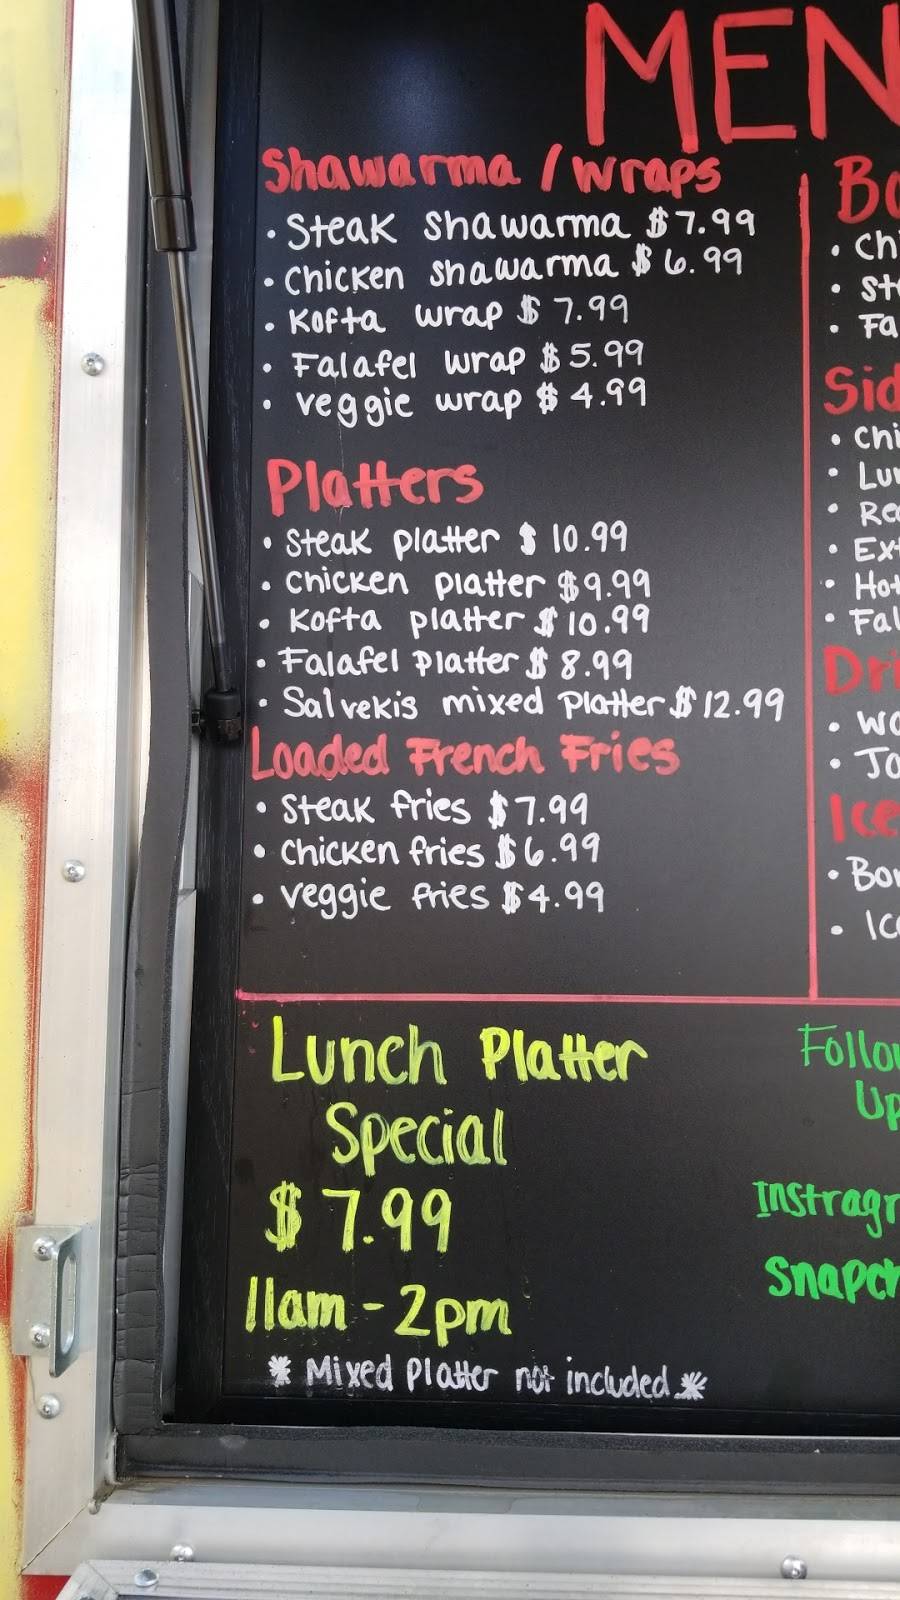 MEN
Shawarma / Wraps
• Steak Shawarma $7.99
• Chicken shawarma $6.99
• Kofta wrap $7.99
• Falafel wrap $5.99
• veggie wrap $4.99
Platters
• Steak platter $10.99
• Chicken platter $9.99
• Kofta platter $10.99
• Falafel platter $8.99
• Salvekis mixed platter $12.99
Loaded French Fries
• Steak fries $7.99
• Chicken fries $6.99
• veggie fries $4.99
Bo
• Chi
• Ste
• Fa
Sid
• Chi
• Lun
• Rec
• Ext
• Hot
• Fal
Dri
• Wa
• Jo
Ice
• Bon
• Ice
Lunch Platter
Special
$7.99
11am - 2pm
* Mixed Platter not included *
Follow
Up
Instragr
Snapch